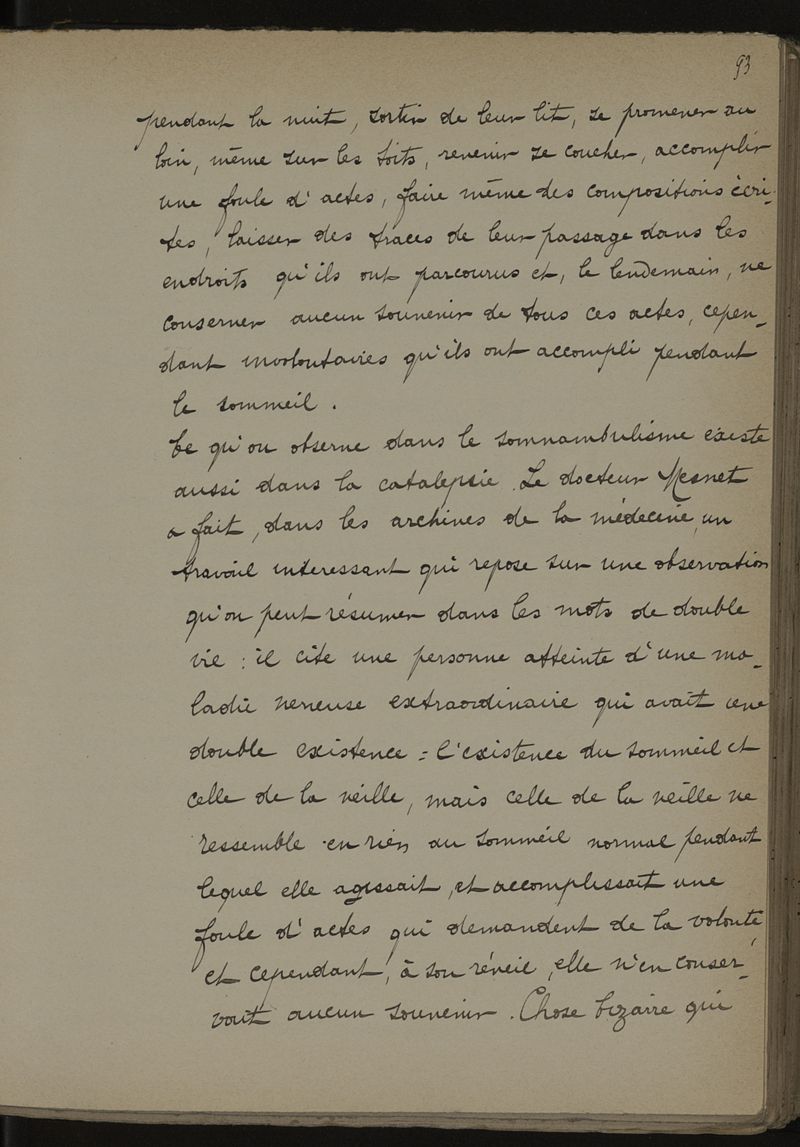 93
pendant la nuit, sortir de leur lit, se promener au
loin, même sur les toits, revenir se coucher, accomplir
une foule d'actes, faire même des compositions écri-
tes, laisser des traces de leur passage dans les
endroits qu'ils ont parcourus et, le lendemain, ne
conserver aucun souvenir de tous ces actes, cepen-
dant involontaires qu'ils ont accompli pendant
le sommeil.
Ce qu'on observe dans le somnambulisme existe
aussi dans la catalepsie. Le docteur Mesnet
a fait, dans les archives de la médecine, un
travail interessant qui repose sur une observation
qu'on peut résumer dans les mots de double
vie : il cite une personne atteinte d'une ma-
ladie nerveuse extraordinaire qui avait une
double existence = l'existence du sommeil et
celle de la veille, mais celle de la veille ne
ressemble en rien au sommeil normal pendant
lequel elle agissait, et accomplissait une
foule d'actes qui demandent de la volonté,
et cependant, à son réveil, elle n'en conser-
vait aucun souvenir. Chose bizarre qui